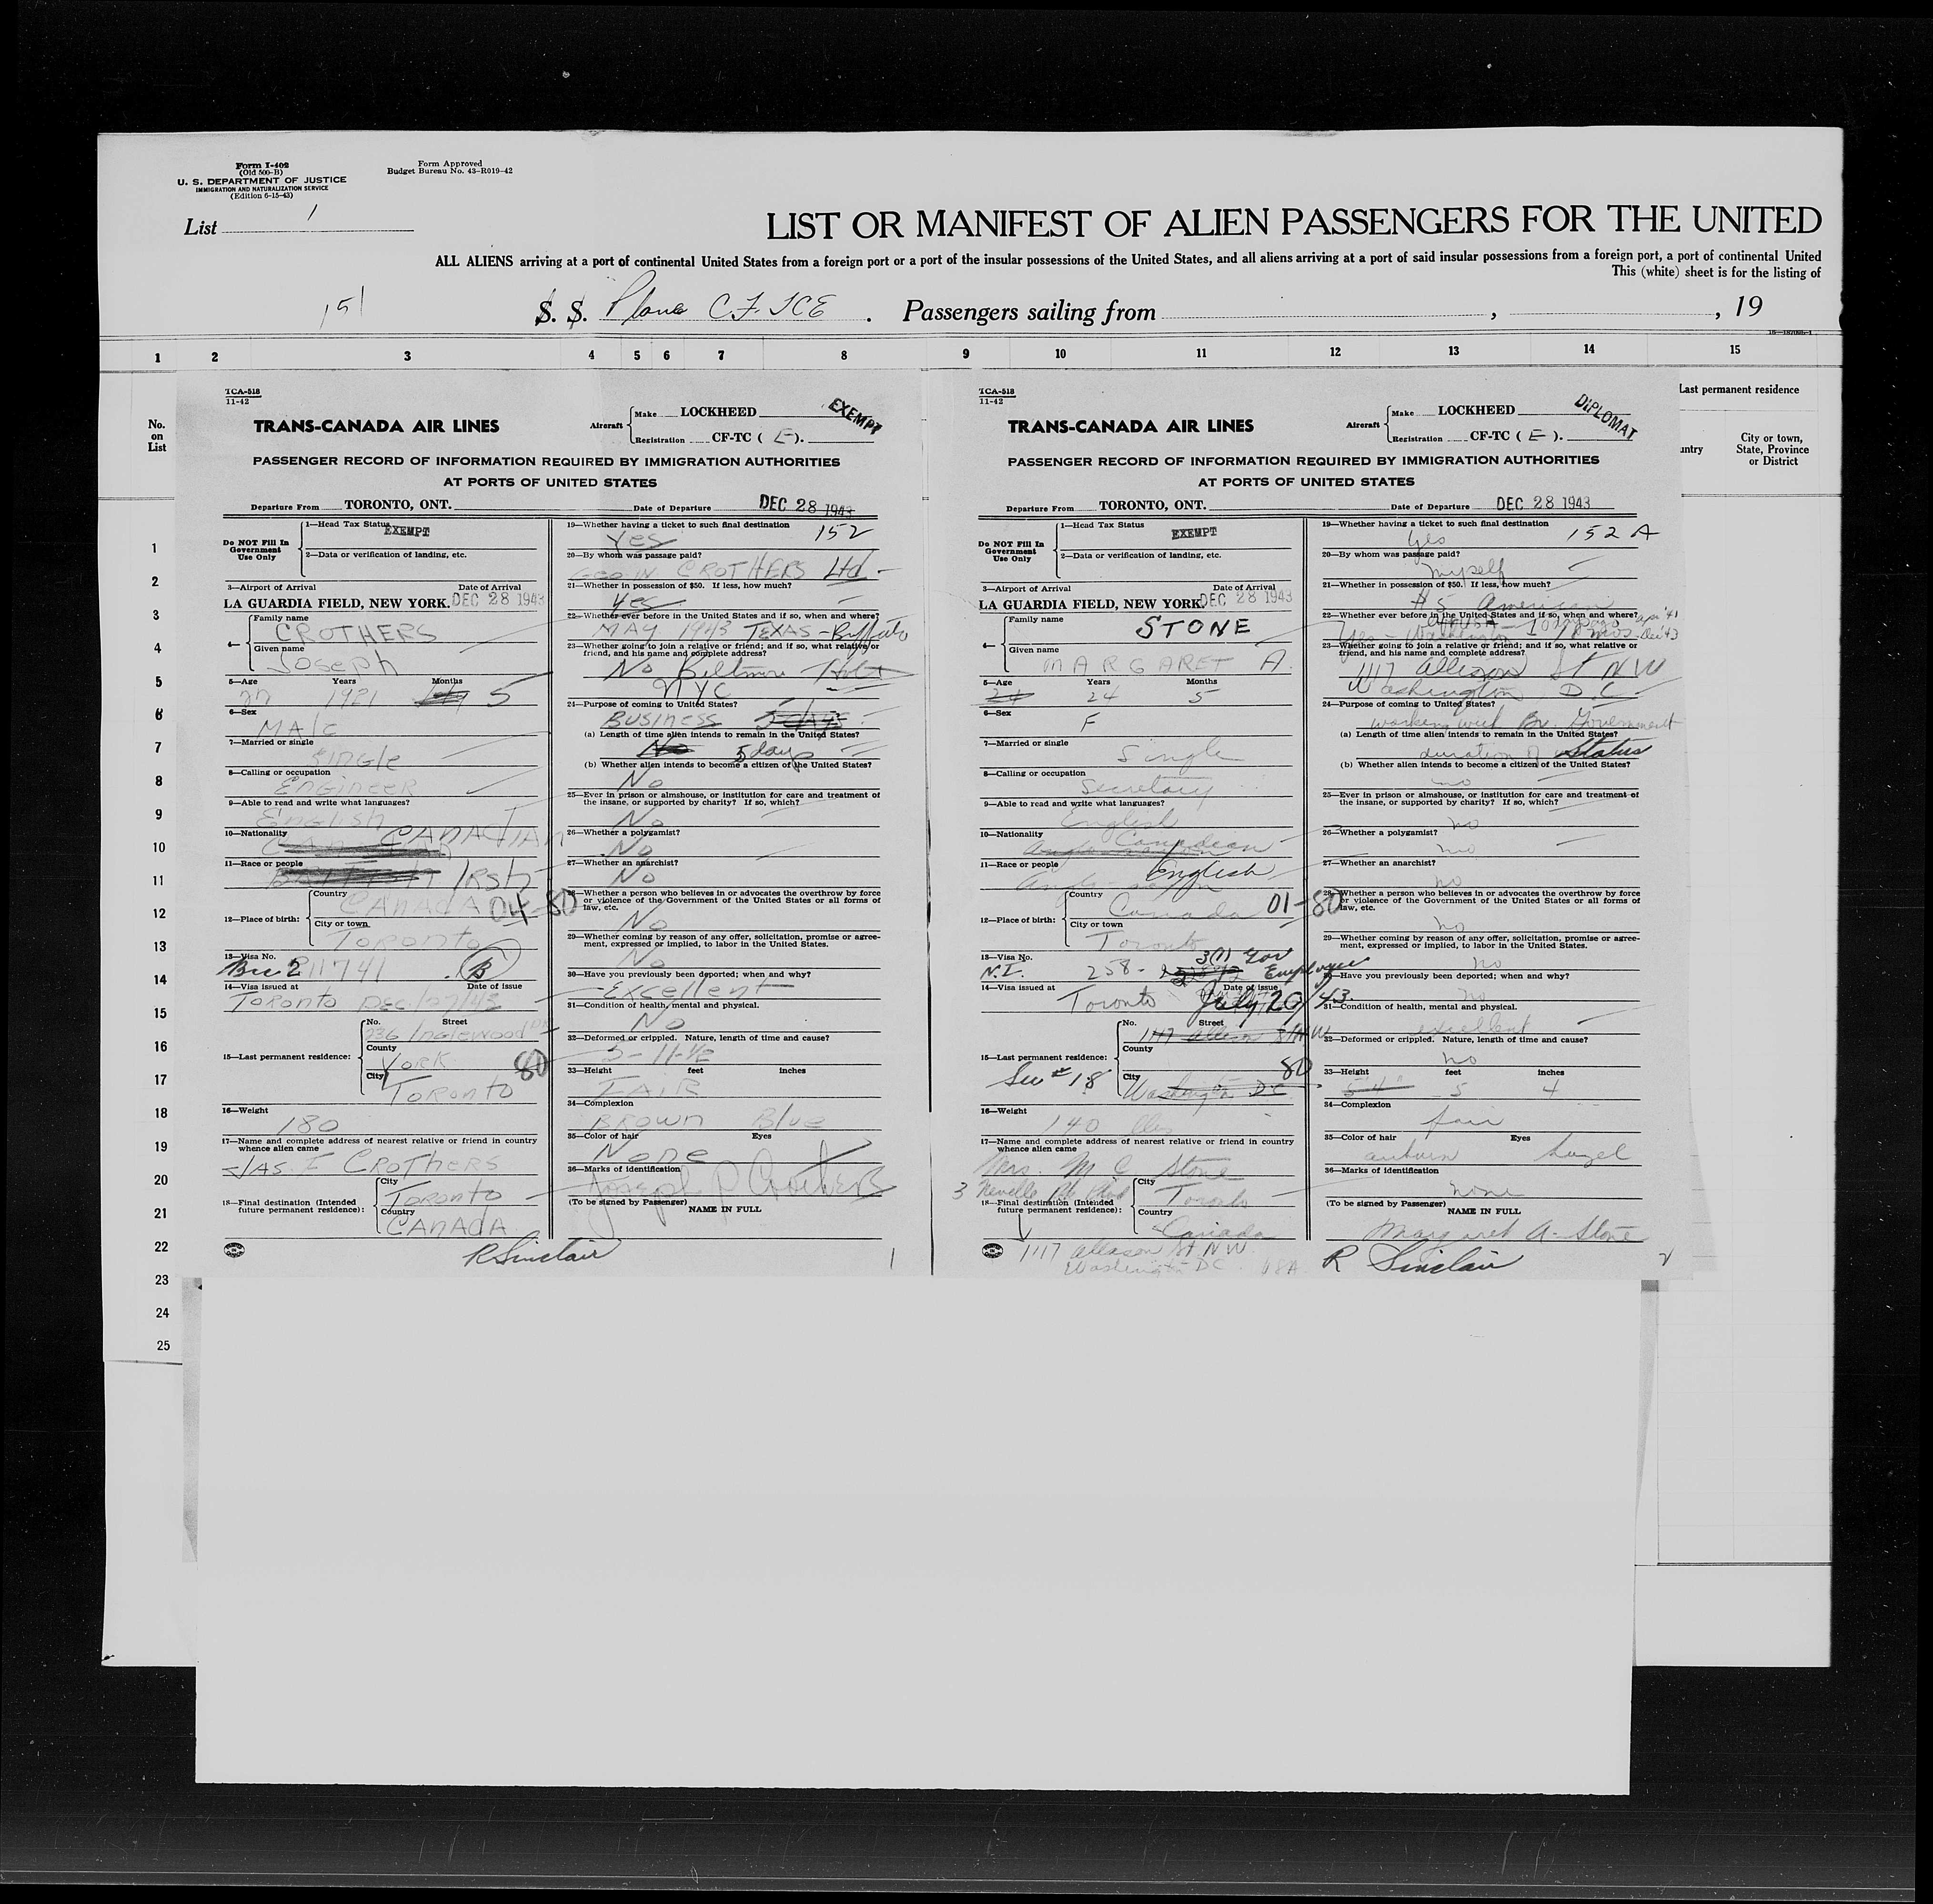 Form I-402
(Old 500-B)
U. S. DEPARTMENT OF JUSTICE
IMMIGRATION AND NATURALIZATION SERVICE
(Edition 6-15-43)
Form Approved
Budget Bureau No. 43-R019-42
List 1
LIST OR MANIFEST OF ALIEN PASSENGERS FOR THE UNITED
ALL ALIENS arriving at a port of continental United States from a foreign port or a port of the insular possessions of the United States, and all aliens arriving at a port of said insular possessions from a foreign port, a port of continental United
This (white) sheet is for the listing of
151 S. S. Plane C.F. TCE . Passengers sailing from , , 19
1 2 3 4 5 6 7 8 9 10 11 12 13 14 15
No. on List
Last permanent residence
untry
City or town, State, Province or District
1
2
3
4
5
6
7
8
9
10
11
12
13
14
15
16
17
18
19
20
21
22
23
24
25
TCA-518
11-42
TRANS-CANADA AIR LINES
Aircraft Make LOCKHEED EXEMPT
Registration CF-TC ( E ).
PASSENGER RECORD OF INFORMATION REQUIRED BY IMMIGRATION AUTHORITIES
AT PORTS OF UNITED STATES
Departure From TORONTO, ONT. Date of Departure DEC 28 1943
Do NOT Fill In Government Use Only
1—Head Tax Status EXEMPT
2—Data or verification of landing, etc.
3—Airport of Arrival Date of Arrival
LA GUARDIA FIELD, NEW YORK. DEC 28 1943
4— Family name
CROTHERS
Given name
Joseph
5—Age Years Months
1921 5
6—Sex
Male
7—Married or single
Single
8—Calling or occupation
Engineer
9—Able to read and write what languages?
English
10—Nationality
CANADIAN
11—Race or people
IRSh
12—Place of birth: Country
CANADA 04-80
City or town
Toronto
13—Visa No.
211741 B
14—Visa issued at Date of issue
Toronto Dec/27/43
15—Last permanent residence: No. Street
236 Inglewood Dr
County
York 80
City
Toronto
16—Weight
180
17—Name and complete address of nearest relative or friend in country whence alien came
JAS. F CROTHERS
18—Final destination (Intended future permanent residence): City
Toronto
Country
CANADA
R Sinclair
19—Whether having a ticket to such final destination
Yes 152
20—By whom was passage paid?
CROTHERS Ltd
21—Whether in possession of $50. If less, how much?
Yes
22—Whether ever before in the United States and if so, when and where?
MAY 1943 TEXAS - Buffalo
23—Whether going to join a relative or friend; and if so, what relative or friend, and his name and complete address?
No Biltmore Hotel
NYC
24—Purpose of coming to United States?
BUSINESS 5 days
(a) Length of time alien intends to remain in the United States?
No 5 days
(b) Whether alien intends to become a citizen of the United States?
No
25—Ever in prison or almshouse, or institution for care and treatment of the insane, or supported by charity? If so, which?
No
26—Whether a polygamist?
No
27—Whether an anarchist?
No
28—Whether a person who believes in or advocates the overthrow by force or violence of the Government of the United States or all forms of law, etc.
No
29—Whether coming by reason of any offer, solicitation, promise or agreement, expressed or implied, to labor in the United States.
No
30—Have you previously been deported; when and why?
Excellent
31—Condition of health, mental and physical.
No
32—Deformed or crippled. Nature, length of time and cause?
5-11-½
33—Height feet inches
FAIR
34—Complexion
BROWN Blue
35—Color of hair Eyes
None
36—Marks of identification
Joseph P Crothers
(To be signed by Passenger) NAME IN FULL
1
TCA-518
11-42
TRANS-CANADA AIR LINES
Aircraft Make LOCKHEED DIPLOMAT
Registration CF-TC ( E ).
PASSENGER RECORD OF INFORMATION REQUIRED BY IMMIGRATION AUTHORITIES
AT PORTS OF UNITED STATES
Departure From TORONTO, ONT. Date of Departure DEC 28 1943
Do NOT Fill In Government Use Only
1—Head Tax Status EXEMPT
2—Data or verification of landing, etc.
3—Airport of Arrival Date of Arrival
LA GUARDIA FIELD, NEW YORK. DEC 28 1943
4— Family name
STONE
Given name
MARGARET A.
5—Age Years Months
24 24 5
6—Sex F
7—Married or single
Single
8—Calling or occupation
Secretary
9—Able to read and write what languages?
English
10—Nationality
Canadian
11—Race or people
English
12—Place of birth: Country
Canada 01-80
City or town
Toronto
13—Visa No. 3(1) Gov
N.I. 258- Employee
14—Visa issued at Date of issue
Toronto July 20/43.
15—Last permanent residence: No. Street
1117 Allison St NW
County
See #18 80
City
Washington DC
16—Weight
140 lbs
17—Name and complete address of nearest relative or friend in country whence alien came
Mrs. M C Stone
3 Neville Pk Blvd
18—Final destination (Intended future permanent residence): City
Toronto
Country
Canada
1117 Allison St NW
Washington DC USA
19—Whether having a ticket to such final destination
Yes 152 A
20—By whom was passage paid?
myself
21—Whether in possession of $50. If less, how much?
American
22—Whether ever before in the United States and if so, when and where?
Yes - Washington
23—Whether going to join a relative or friend; and if so, what relative or friend, and his name and complete address?
1117 Allison St NW
Washington D.C.
24—Purpose of coming to United States?
working with Br. Government
(a) Length of time alien intends to remain in the United States?
duration of Status
(b) Whether alien intends to become a citizen of the United States?
no
25—Ever in prison or almshouse, or institution for care and treatment of the insane, or supported by charity? If so, which?
no
26—Whether a polygamist?
no
27—Whether an anarchist?
no
28—Whether a person who believes in or advocates the overthrow by force or violence of the Government of the United States or all forms of law, etc.
no
29—Whether coming by reason of any offer, solicitation, promise or agreement, expressed or implied, to labor in the United States.
no
30—Have you previously been deported; when and why?
no
31—Condition of health, mental and physical.
excellent
32—Deformed or crippled. Nature, length of time and cause?
no
33—Height feet inches
5'4" 5 4
34—Complexion
fair
35—Color of hair Eyes
auburn hazel
36—Marks of identification
none
(To be signed by Passenger) NAME IN FULL
Margaret A. Stone
R Sinclair 2